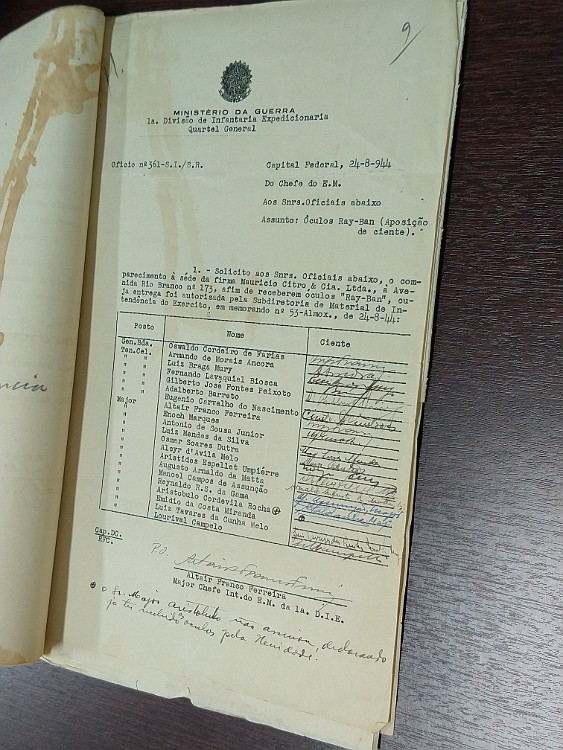 9
MINISTÉRIO DA GUERRA
1a. Divisão de Infantaria Expedicionaria
Quartel General
Ofício nº361-S.I./S.R.
Capital Federal, 24-8-944
Do Chefe do E.M.
Aos Snrs.Oficiais abaixo
Assunto: Óculos Ray-Ban (Aposição
de ciente).
1. - Solicito aos Snrs. Oficiais abaixo, o com-
parecimento á séde da firma Mauricio Citro & Cia. Ltda., á Ave-
nida Rio Branco nº 173, afim de receberem óculos "Ray-Ban", cu-
ja entrega foi autorizada pela Subdiretoria de Material de In-
tendência do Exercito, em memorando nº 53-Almox., de 24-8-44:
Posto Nome Ciente
Gen.Bda. Oswaldo Cordeiro de Farias
Ten.Cel. Armando de Morais Ancora
" " Luis Braga Mury
" " Fernando Lavaquiel Biosca
" " Gilberto José Fontes Peixoto
" " Adalberto Barreto
" " Eugenio Carvalho do Nascimento
Major Altair Franco Ferreira
" Enoch Marques
" Antonio de Sousa Junior
" Luiz Mendes da Silva
" Osmar Soares Dutra
" Alcyr d'Avila Melo
" Aristides Espellet Umpiérre
" Augusto Arnaldo da Matta
" Manoel Campos de Assunção
" Reynaldo R.S. da Gama
" Aristobulo Cordevila Rocha
" Emidio da Costa Miranda
" Luiz Tavares da Cunha Melo
" Lourival Campelo
Cap.DC.
P.O.
Altair Franco Ferreira
Major Chefe Int.do E.M. da 1a. D.I.E.
o Sr. Major Aristobulo não assinou, declarando
já ter recebido óculos pela